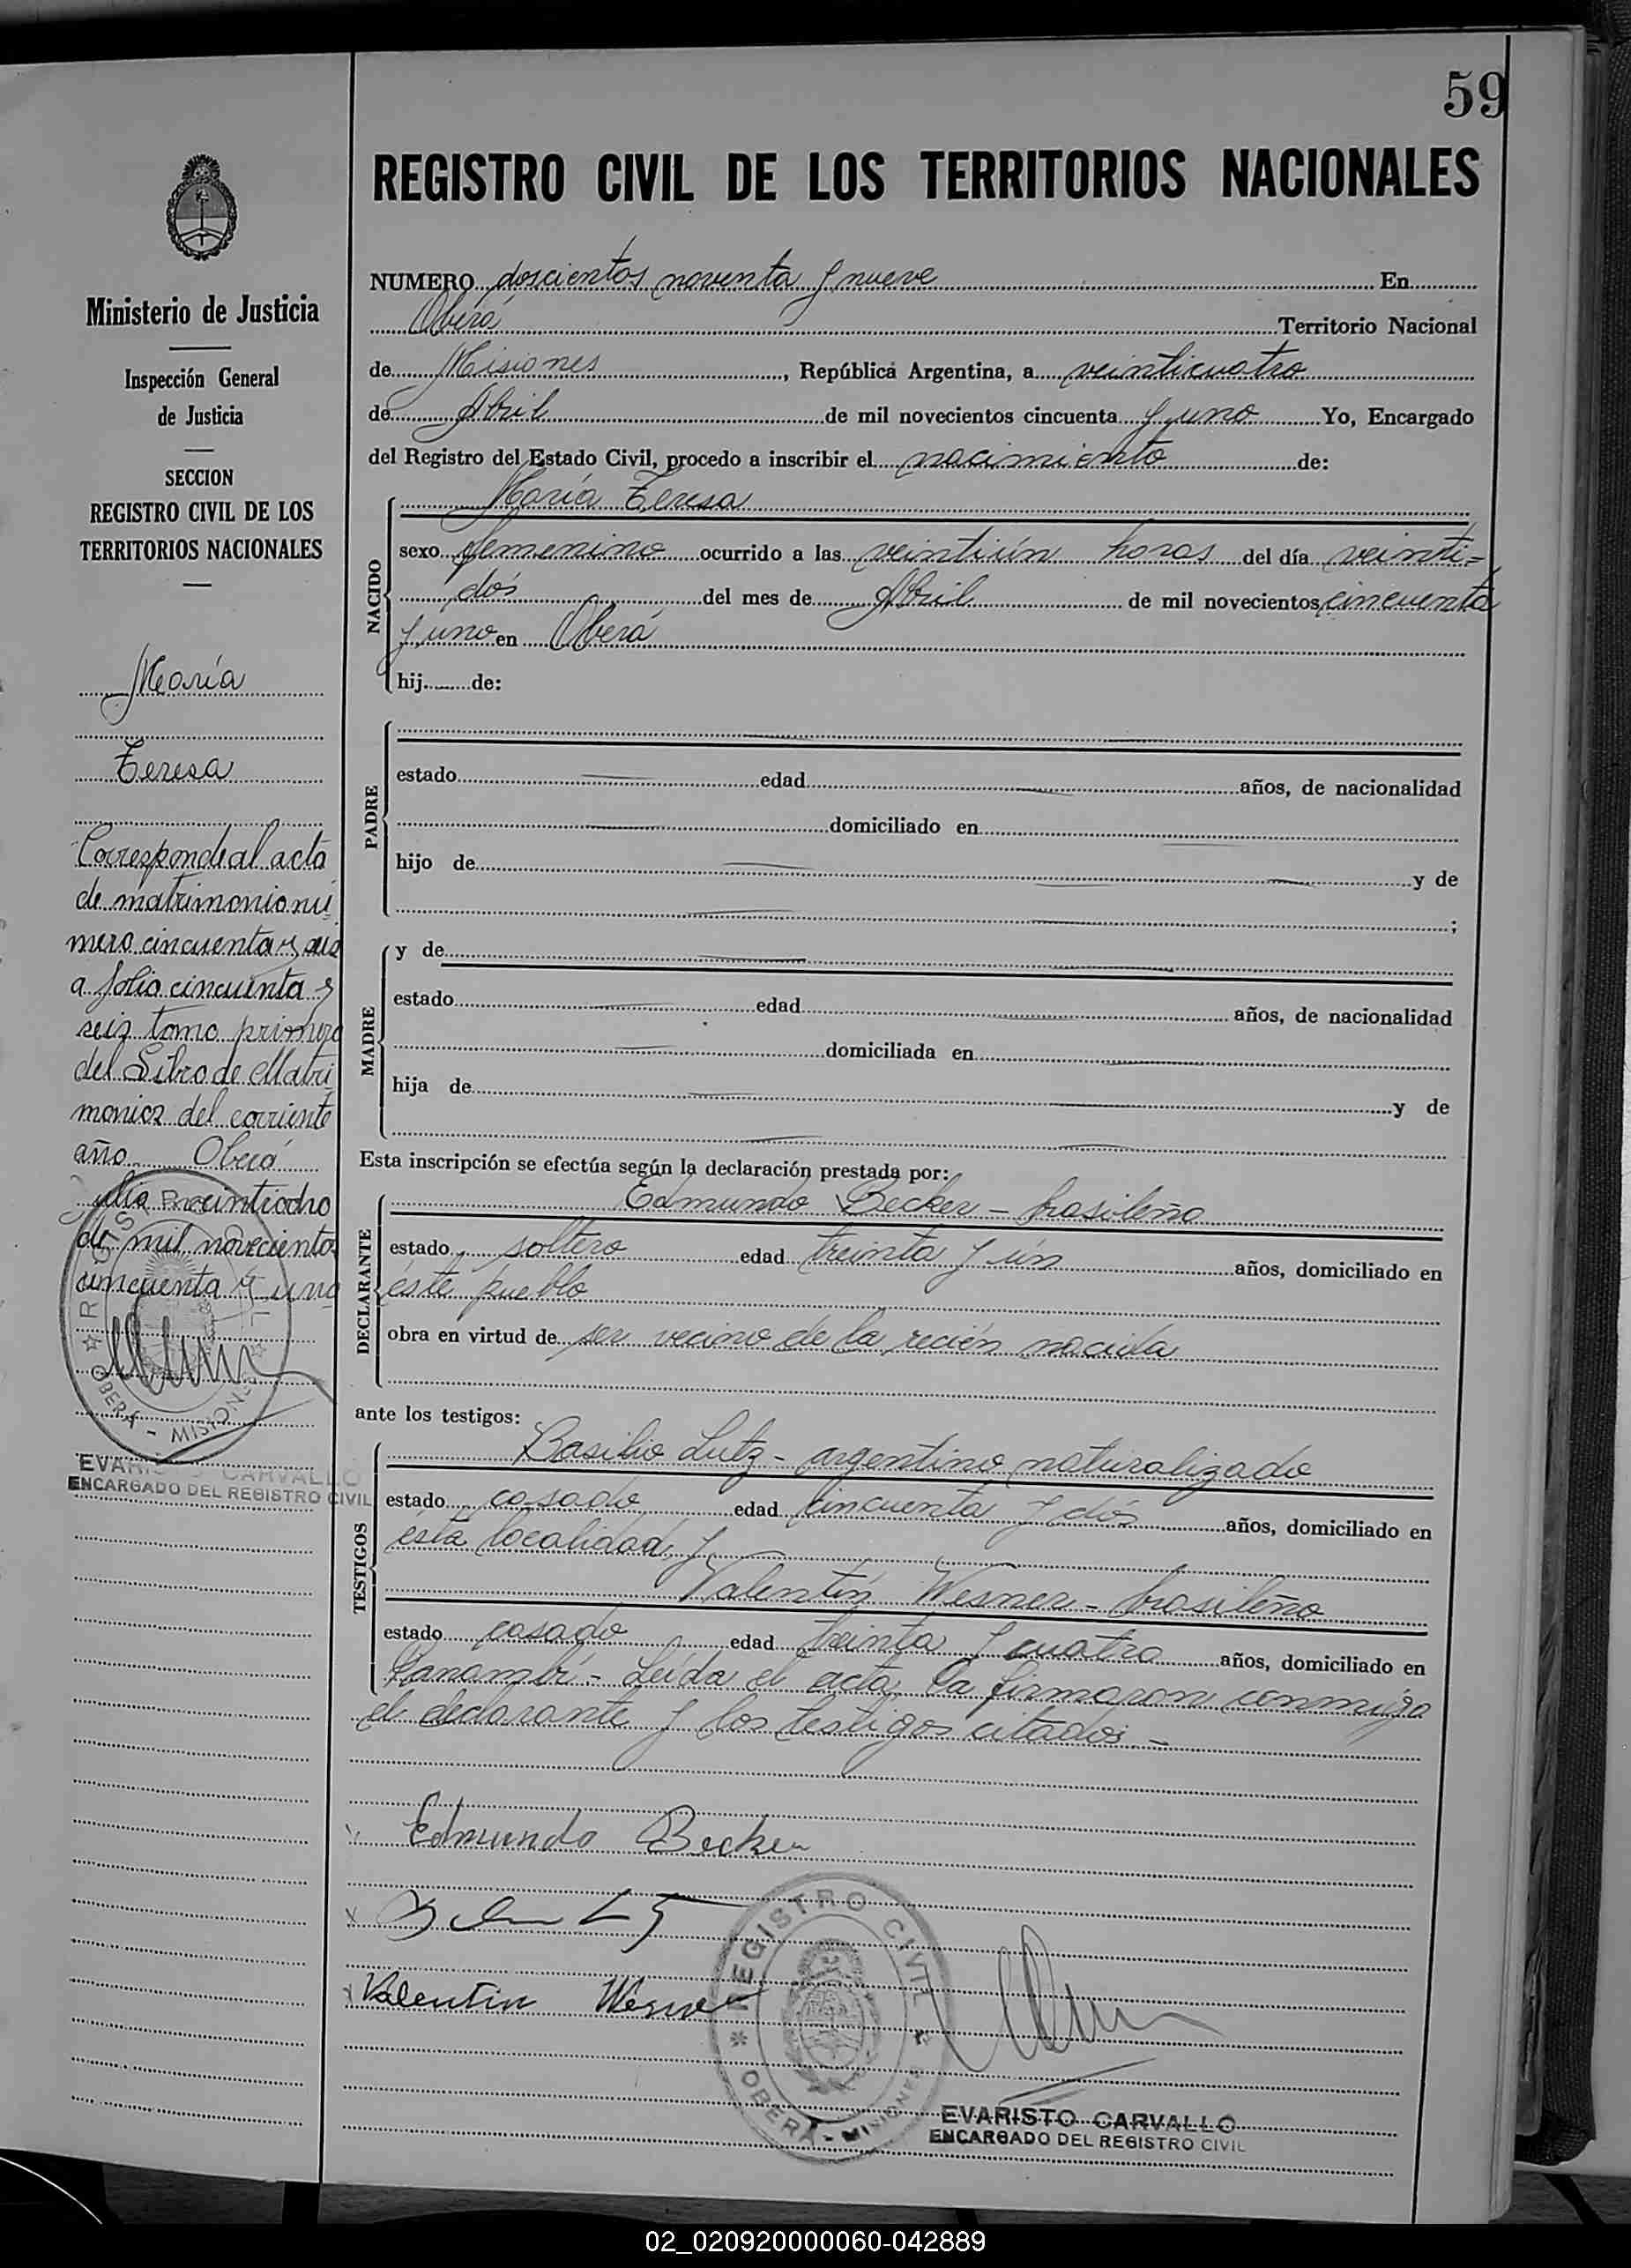 59
REGISTRO CIVIL DE LOS TERRITORIOS NACIONALES
Ministerio de Justicia
Inspección General
de Justicia
SECCION
REGISTRO CIVIL DE LOS
TERRITORIOS NACIONALES
María
Teresa
Corresponde al acta
de matrimonio nú
mero cincuenta y seis
a folio cincuenta y
seis tomo primero
del Libro de Matri
monios del corriente
año Oberá
Julio veintiocho
de mil novecientos
cincuenta y uno
OBERÁ - MISIONES
CARVALLO
ENCARGADO DEL REGISTRO CIVIL
NUMERO doscientos noventa y nueve En
Oberá Territorio Nacional
de Misiones, República Argentina, a veinticuatro
de Abril de mil novecientos cincuenta y uno Yo, Encargado
del Registro del Estado Civil, procedo a inscribir el nacimiento de:
NACIDO
María Teresa
sexo femenino ocurrido a las veintiún horas del día veinti-
dós del mes de Abril de mil novecientos cincuenta
y uno en Oberá
hij de:
PADRE
estado edad años, de nacionalidad
domiciliado en
hijo de y de
;
MADRE
y de
estado edad años, de nacionalidad
domiciliada en
hija de y de
Esta inscripción se efectúa según la declaración prestada por:
DECLARANTE
Edmundo Becker - brasileño
estado soltero edad treinta y ún años, domiciliado en
éste pueblo
obra en virtud de ser vecino de la recién nacida
ante los testigos:
TESTIGOS
Basilio Lutz - argentino naturalizado
estado casado edad cincuenta y dós años, domiciliado en
ésta localidad y
Valentín Wesner - brasileño
estado casado edad treinta y cuatro años, domiciliado en
Panambí - Leída el acta, la firmaron conmigo
el declarante y los testigos citados. -
Edmundo Becker
Valentin Wesner
REGISTRO CIVIL
OBERÁ - MISIONES
EVARISTO CARVALLO
ENCARGADO DEL REGISTRO CIVIL
02_020920000060-042889